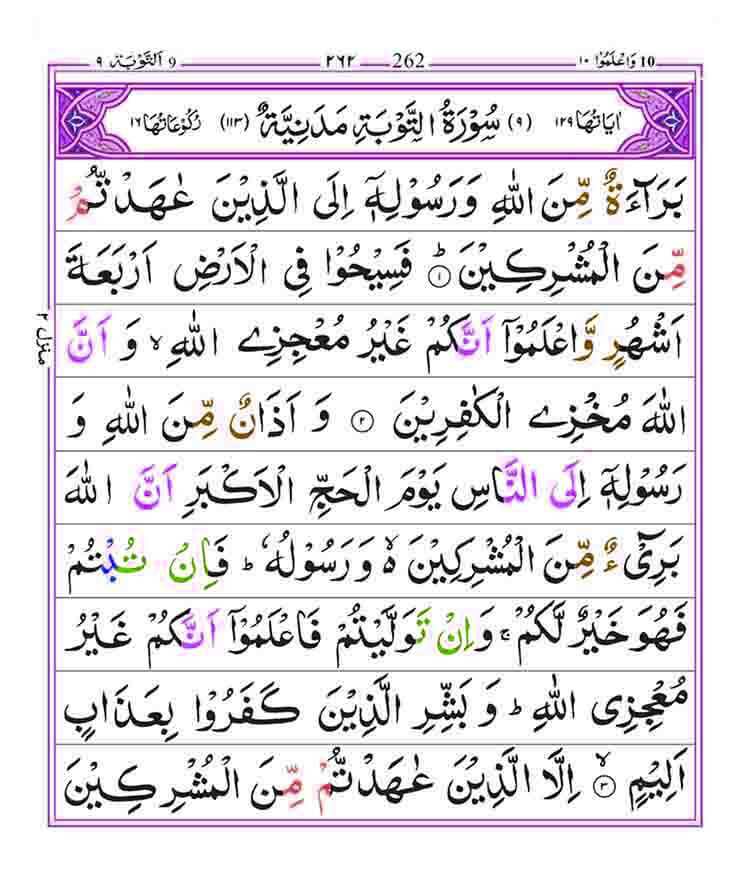 10 وَاعْلَمُوْٓا ١٠ 262 ٢٦٢ 9 اَلتَّوْبَة ٩
اٰيَاتُهَا ١٢٩ (٩) سُوْرَةُ التَّوْبَةِ مَدَنِيَّةٌ (١١٣) رُكُوْعَاتُهَا ١٦
بَرَآءَةٌ مِّنَ اللّٰهِ وَرَسُوْلِهٖٓ اِلَى الَّذِيْنَ عٰهَدْتُّمْ
مِّنَ الْمُشْرِكِيْنَ ؕ ۝١ فَسِيْحُوْا فِي الْاَرْضِ اَرْبَعَةَ
اَشْهُرٍ وَّاعْلَمُوْٓا اَنَّكُمْ غَيْرُ مُعْجِزِي اللّٰهِ ۙ وَ اَنَّ
اللّٰهَ مُخْزِي الْكٰفِرِيْنَ ۝٢ وَ اَذَانٌ مِّنَ اللّٰهِ وَ
رَسُوْلِهٖٓ اِلَى النَّاسِ يَوْمَ الْحَجِّ الْاَكْبَرِ اَنَّ اللّٰهَ
بَرِيْٓءٌ مِّنَ الْمُشْرِكِيْنَ ۙ۬ وَ رَسُوْلُهٗ ؕ فَاِنْ تُبْتُمْ
فَهُوَ خَيْرٌ لَّكُمْ ۚ وَ اِنْ تَوَلَّيْتُمْ فَاعْلَمُوْٓا اَنَّكُمْ غَيْرُ
مُعْجِزِي اللّٰهِ ؕ وَ بَشِّرِ الَّذِيْنَ كَفَرُوْا بِعَذَابٍ
اَلِيْمٍ ۙ ۝٣ اِلَّا الَّذِيْنَ عٰهَدْتُّمْ مِّنَ الْمُشْرِكِيْنَ
منزل ٢